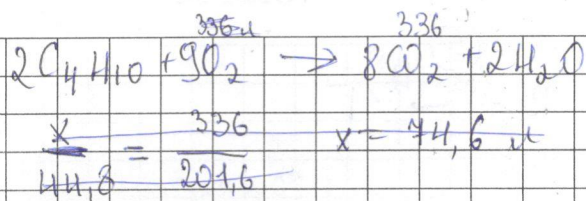 336 л 336
2C₄H₁₀ + 9O₂ → 8CO₂ + 2H₂O
x/44,8 = 336/201,6 x = 74,6 л